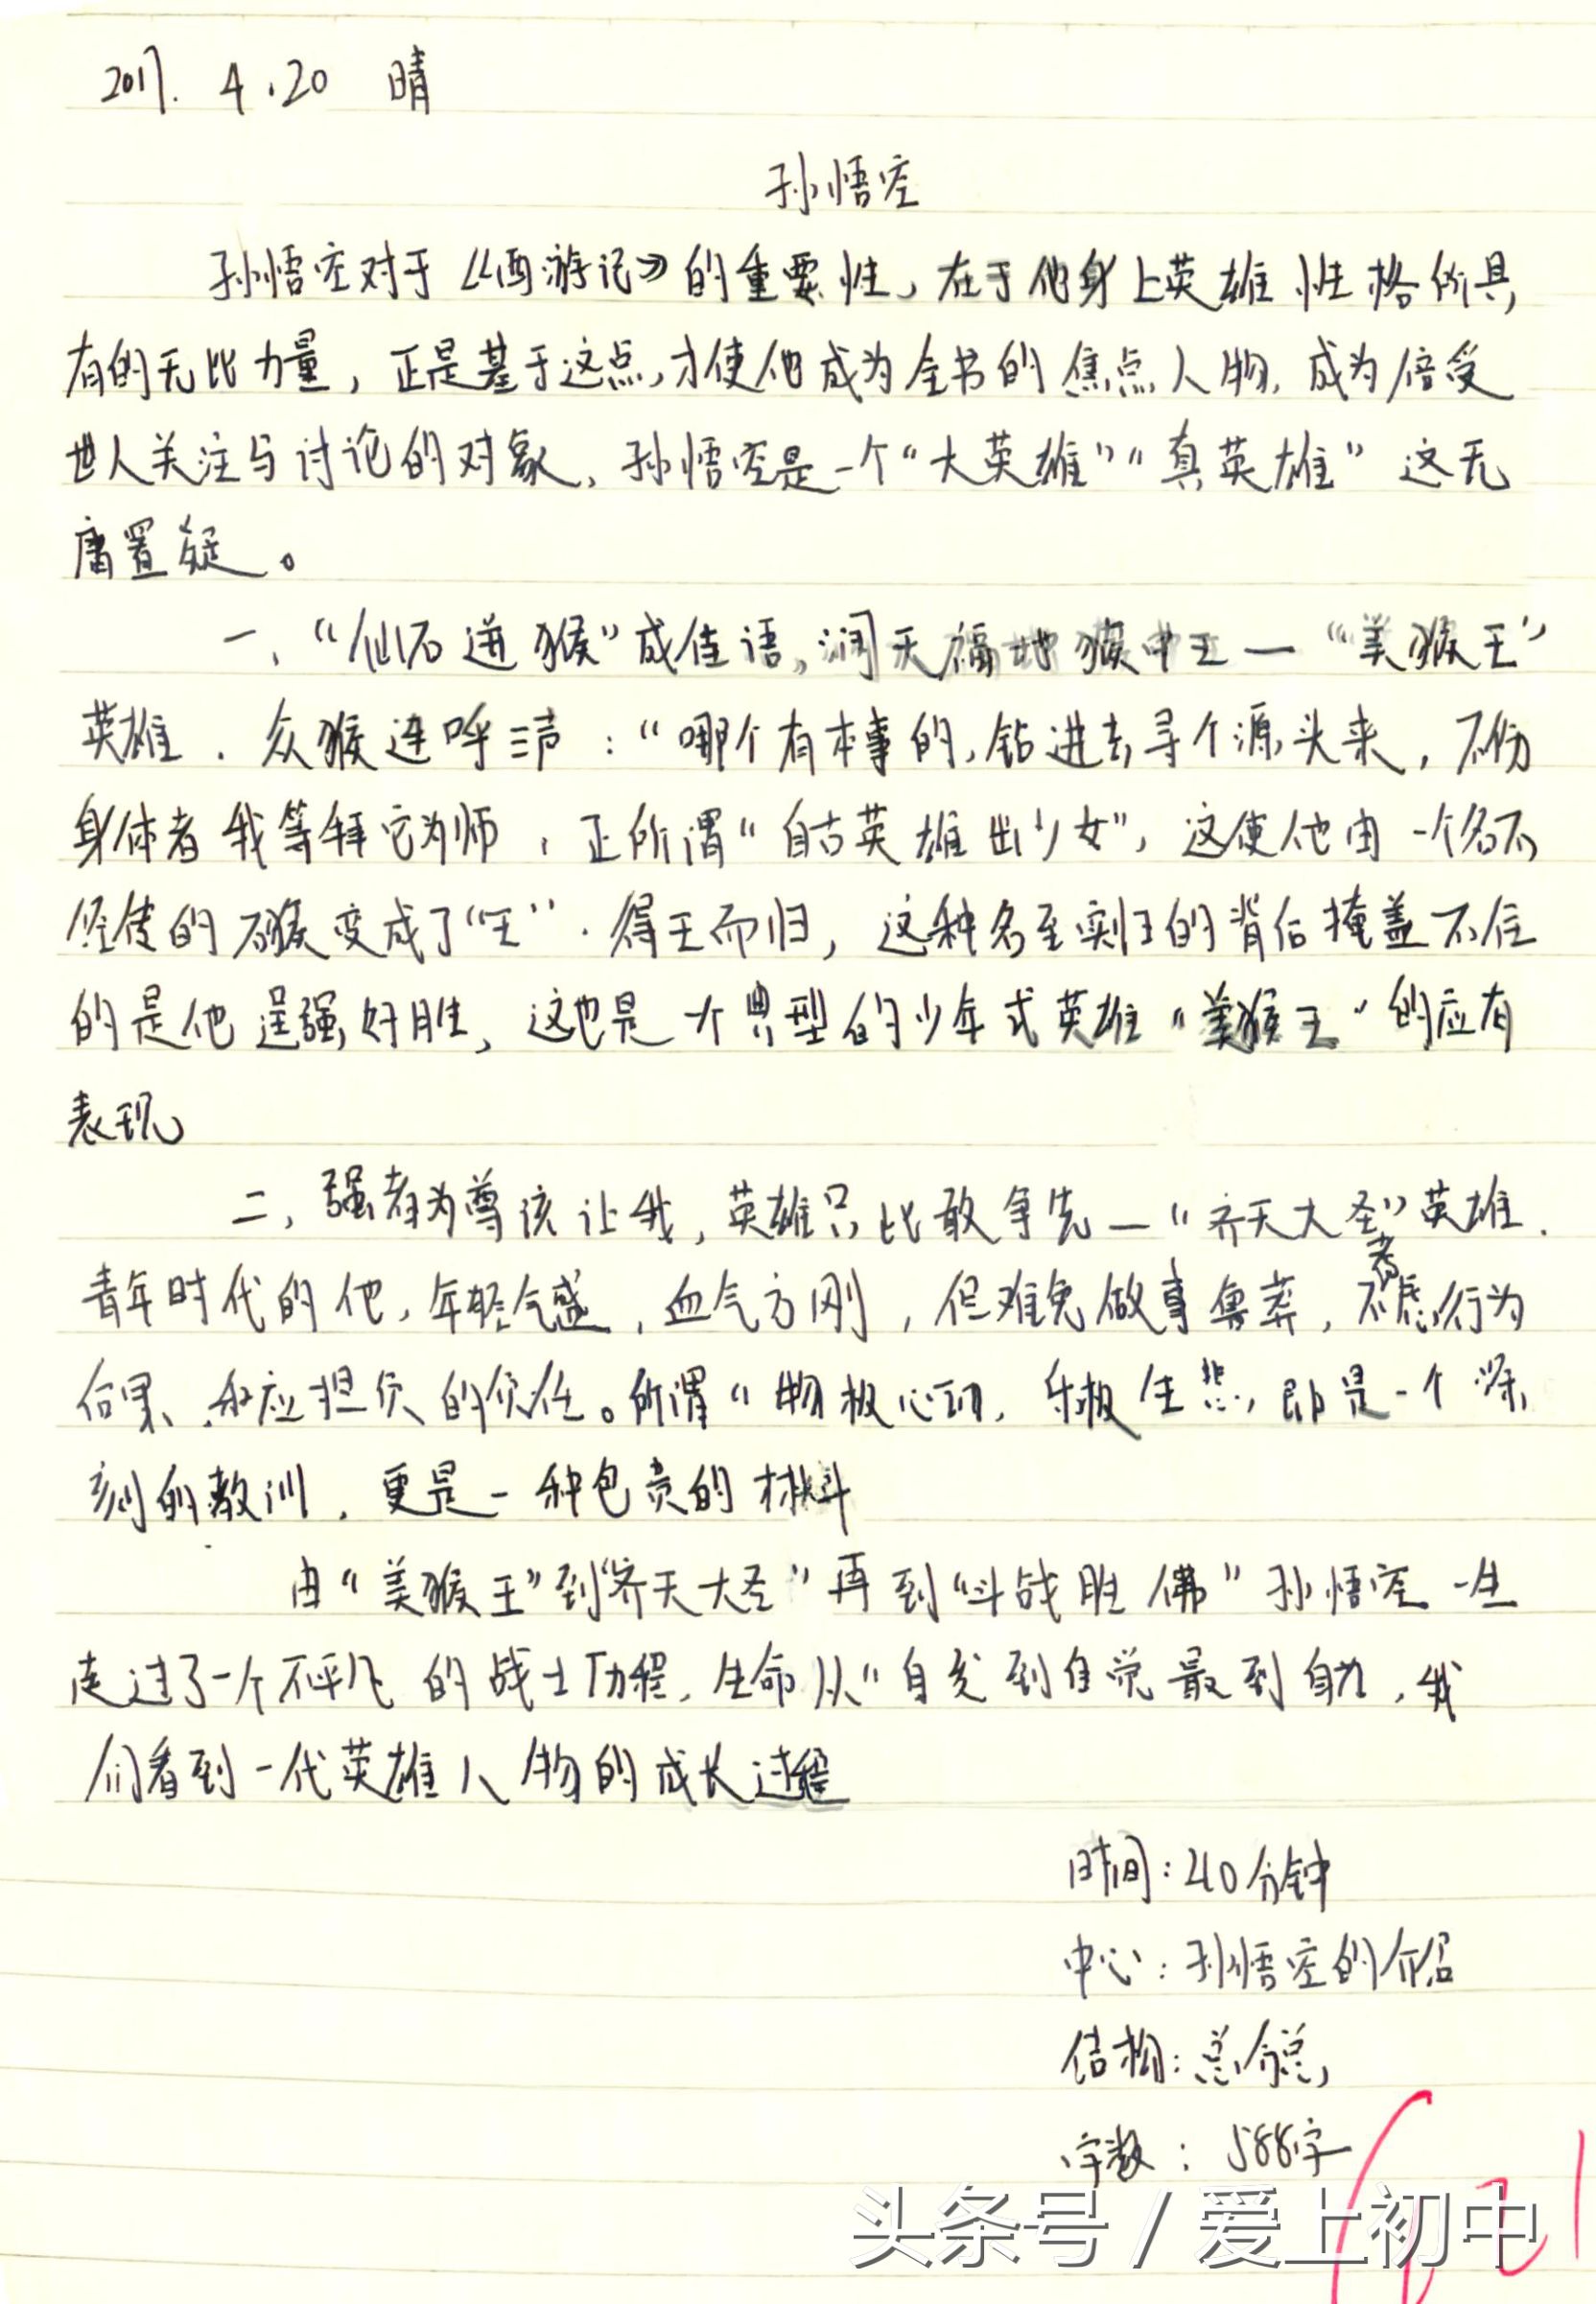 2017. 4.20 晴
孙悟空
孙悟空对于《西游记》的重要性,在于他身上英雄性格所具
有的无比力量,正是基于这点,才使他成为全书的焦点人物,成为倍受
世人关注与讨论的对象,孙悟空是一个“大英雄”“真英雄”这无
庸置疑。
一、“仙石迸猴”成佳话,洞天福地猴中王—“美猴王”
英雄.众猴连呼三声:“哪个有本事的,钻进去寻个源头来,不伤
身体者我等拜它为师,正所谓“自古英雄出少女”,这使他由一个名不
经传的石猴变成了“王”.得王而归,这种名至实归的背后掩盖不住
的是他逞强好胜,这也是一个典型的少年式英雄“美猴王”的应有
表现
二,强者为尊该让我,英雄只比敢争先—“齐天大圣”英雄.
青年时代的他,年轻气盛,血气方刚,但难免做事鲁莽,不考虑行为
后果、和应担负的责任。所谓“物极必,乐极生悲,即是一个深
刻的教训,更是一种包责的材料
由“美猴王”到“齐天大圣”再到“斗战胜佛”孙悟空一生
走过了一个不平凡的战士历程,生命从“自发到自觉最到自,我
们看到一代英雄人物的成长过程
时间:40分钟
中心:孙悟空的介绍
结构:总分总
字数:588字
头条号 / 爱上初中